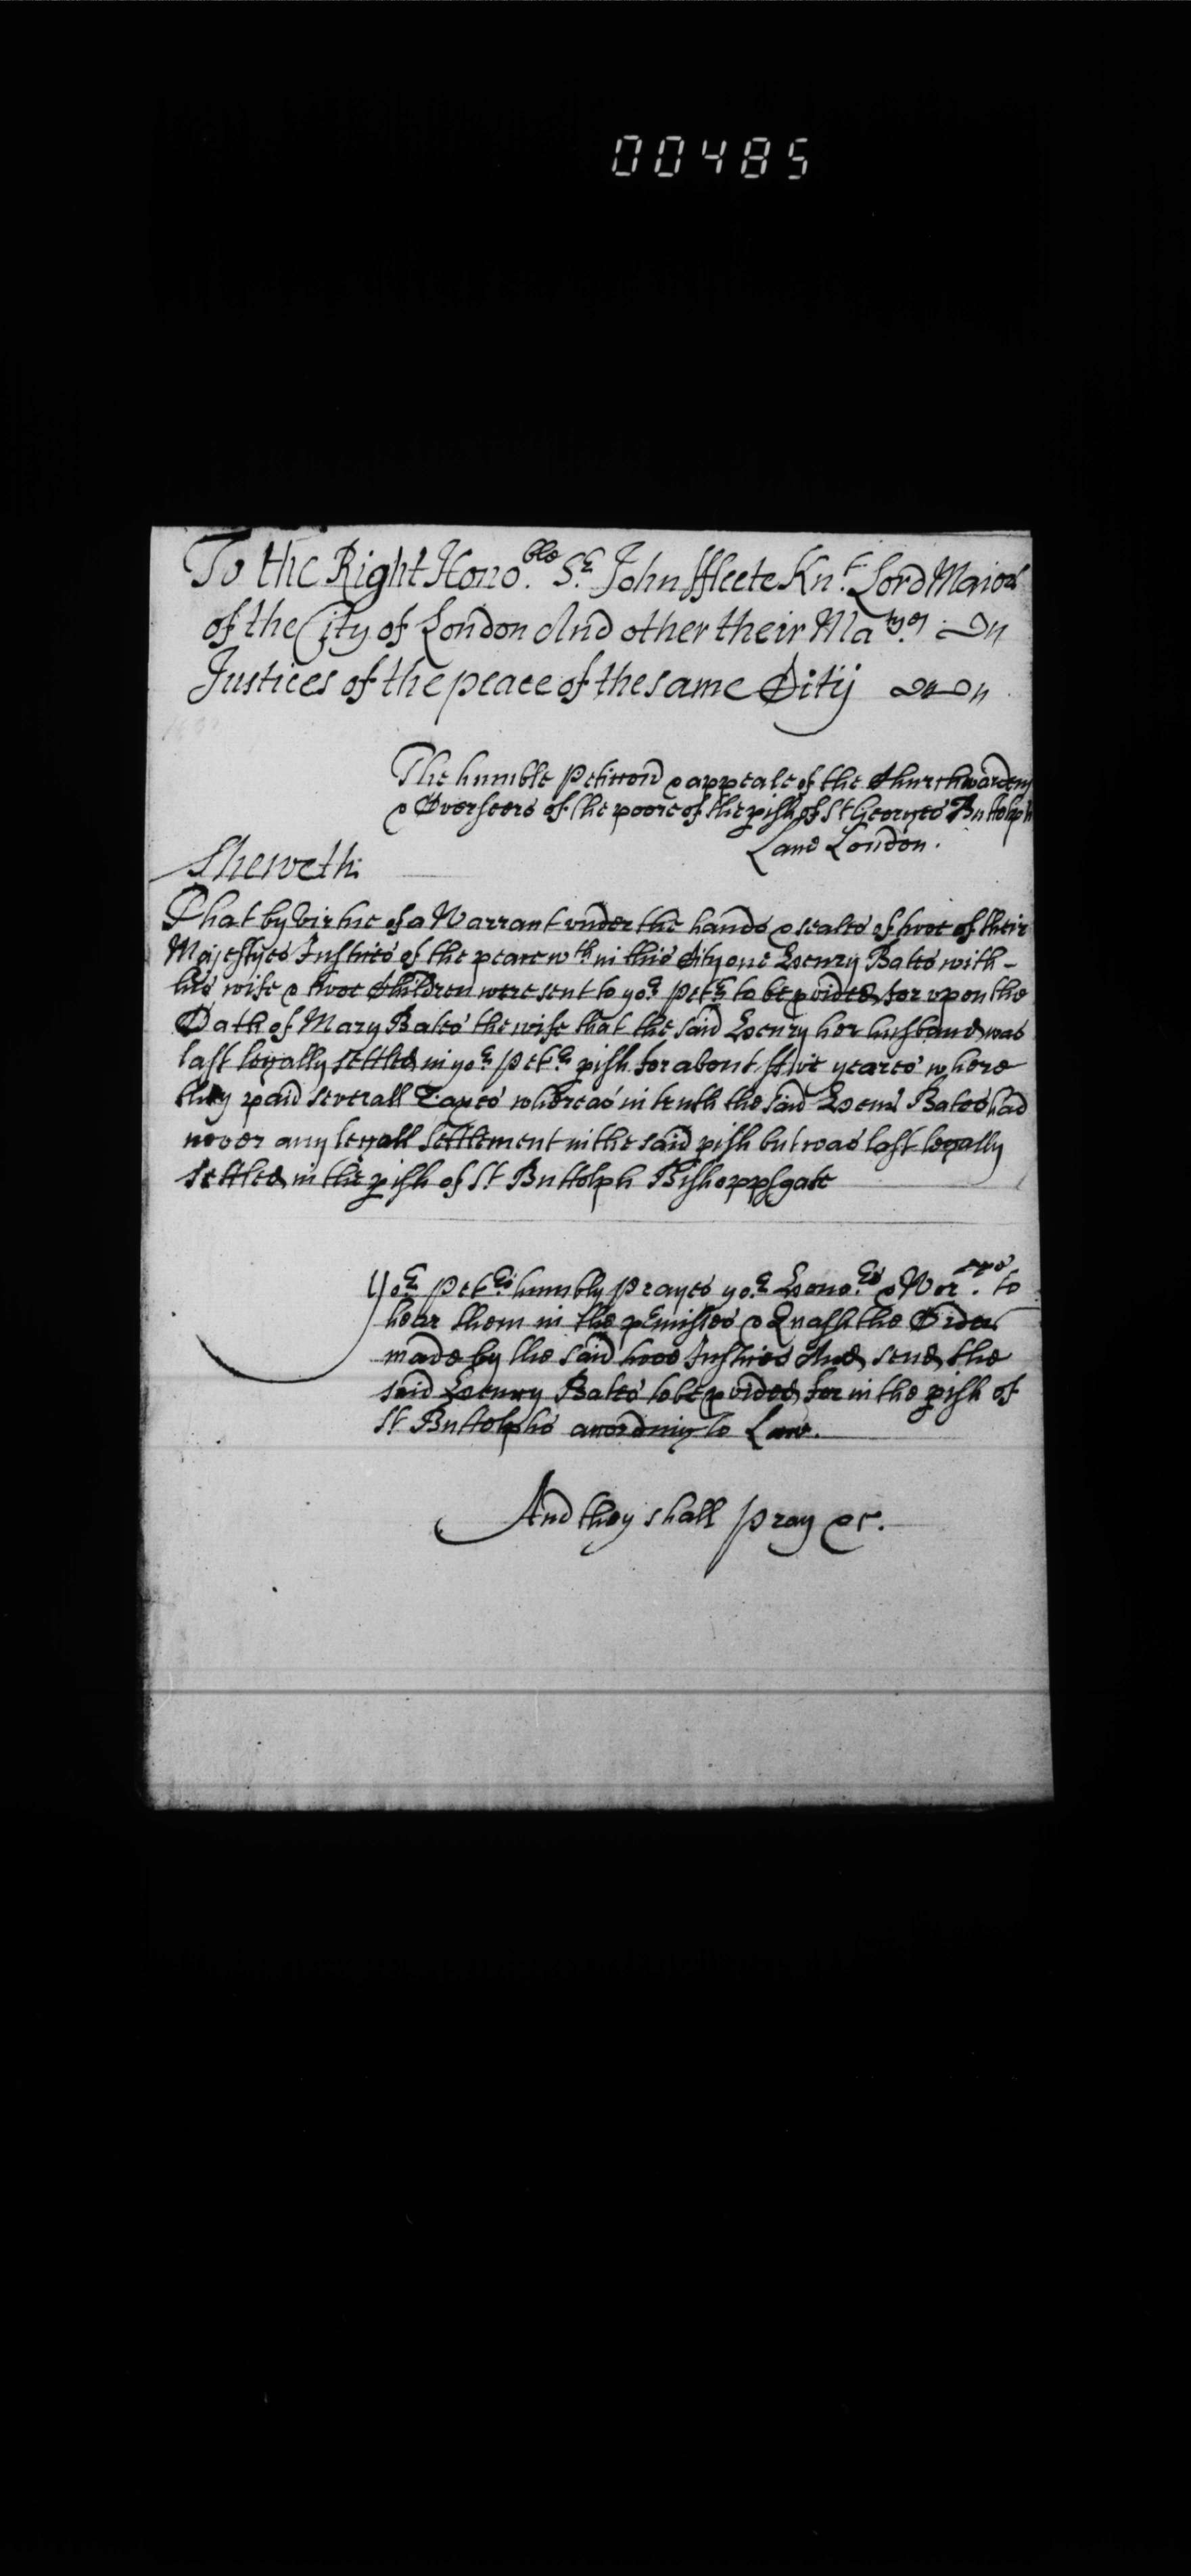 00485
To the Right Hono.ble Sr. John ffleete Knt. Lord Maior
of the City of London And other their Matyes.
Justices of the peace of the same City
The humble Peticon & appeale of the Churchwardens
& Overseers of the poore of the pish of St Georges Buttolph
Lane London.
Sheweth
That by Virtue of a Warrant under the hands & seales of twoe of their
Majestyes Justices of the peace wth in this City one Henry Bates with
his wife & twoe Children were sent to yor Petrs to be pvided for upon the
Oath of Mary Bates the wife that the said Henry her husband was
last legally settled in yor Petrs pish for about ffive yeares where
they paid severall Taxes whereas in truth the said Henry Bates had
never any legall Settlement in the said pish but was last legally
settled in the pish of St Buttolph Bishoppsgate
Yor Petrs humbly prayes yor Honors & Worpps to
hear them in the prmisses & Quash the Order
made by the said twoe Justices And send the
said Henry Bates to be pvided for in the pish of
St Buttolphs according to Law.
And they shall pray &c.